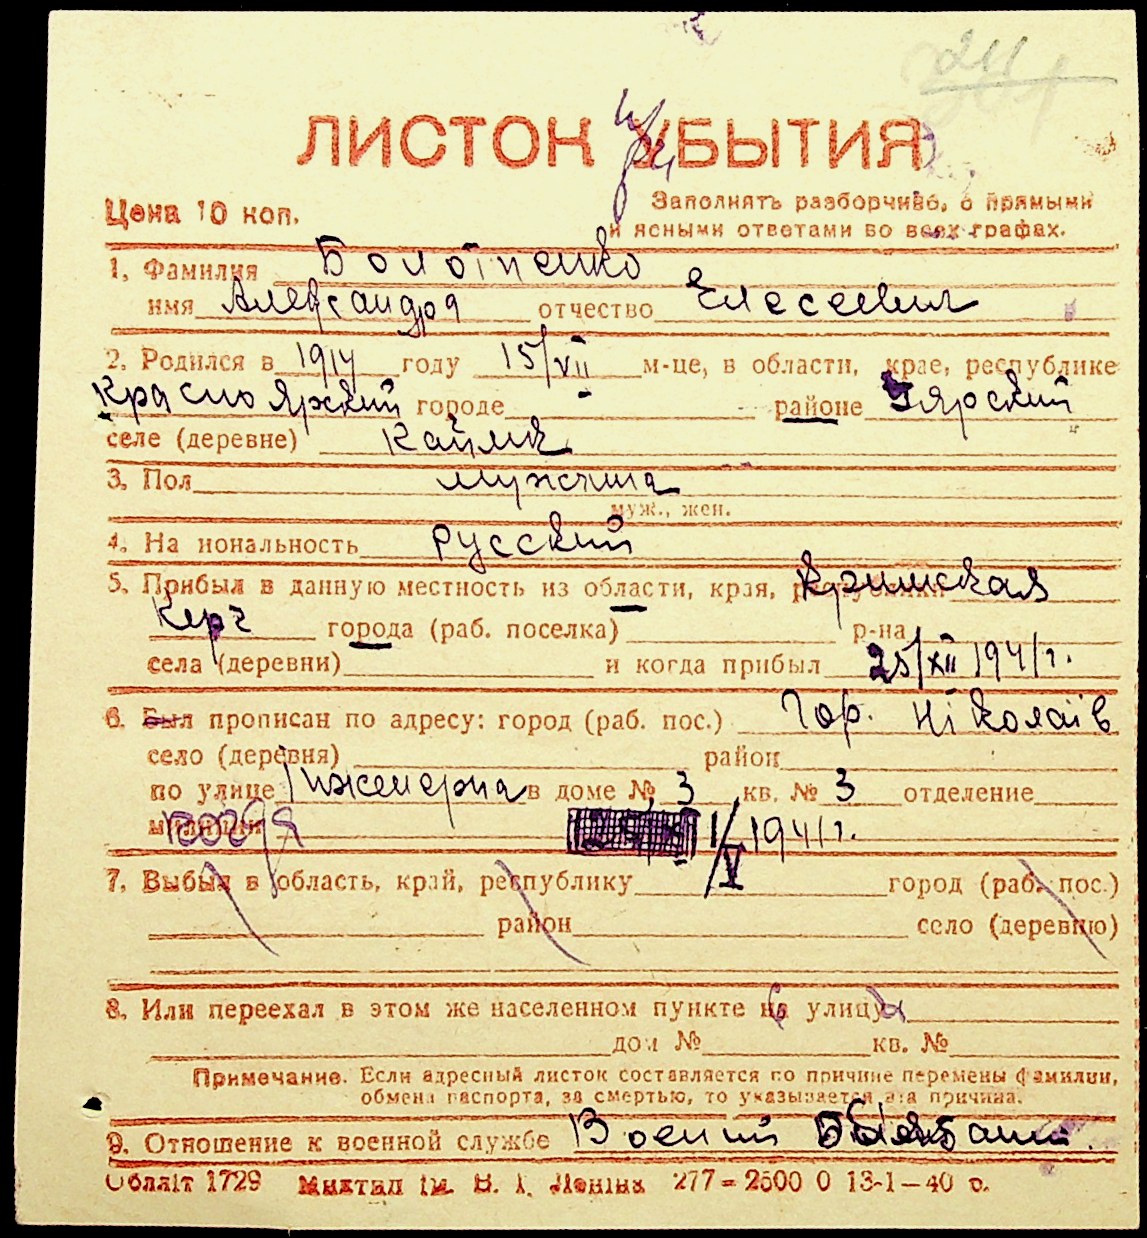 ЛИСТОК УБЫТИЯ
при
Цена 10 коп.
Заполнять разборчиво, с прямыми
и ясными ответами во всех графах.
1. Фамилия Болотненко
имя Александра отчество Елесеевич
2. Родился в 1914 году 15/VII м-це, в области, крае, республике
Красноярский городе районе Уярский
селе (деревне)
3. Пол мужчина
муж., жен.
4. На иональность Русский
5. Прибыл в данную местность из области, края, республики Кримская
Керч города (раб. поселка) р-на
села (деревни) и когда прибыл 25/XII 1941 г.
6. Был прописан по адресу: город (раб. пос.) Гор. Ніколаів
село (деревня) район
по улице Інженерна в доме № 3 кв. № 3 отделение
милиции когда 1/V 1941 г.
7. Выбыл в область, край, республику город (раб. пос.)
район село (деревню)
8. Или переехал в этом же населенном пункте на улицу
дом № кв. №
Примечание. Если адресный листок составляется по причине перемены фамилии,
обмена паспорта, за смертью, то указывается эта причина.
9. Отношение к военной службе
Обліт 1729 Миктип ім. В. І. Леніна 277 = 2500 0 13-1—40 р.